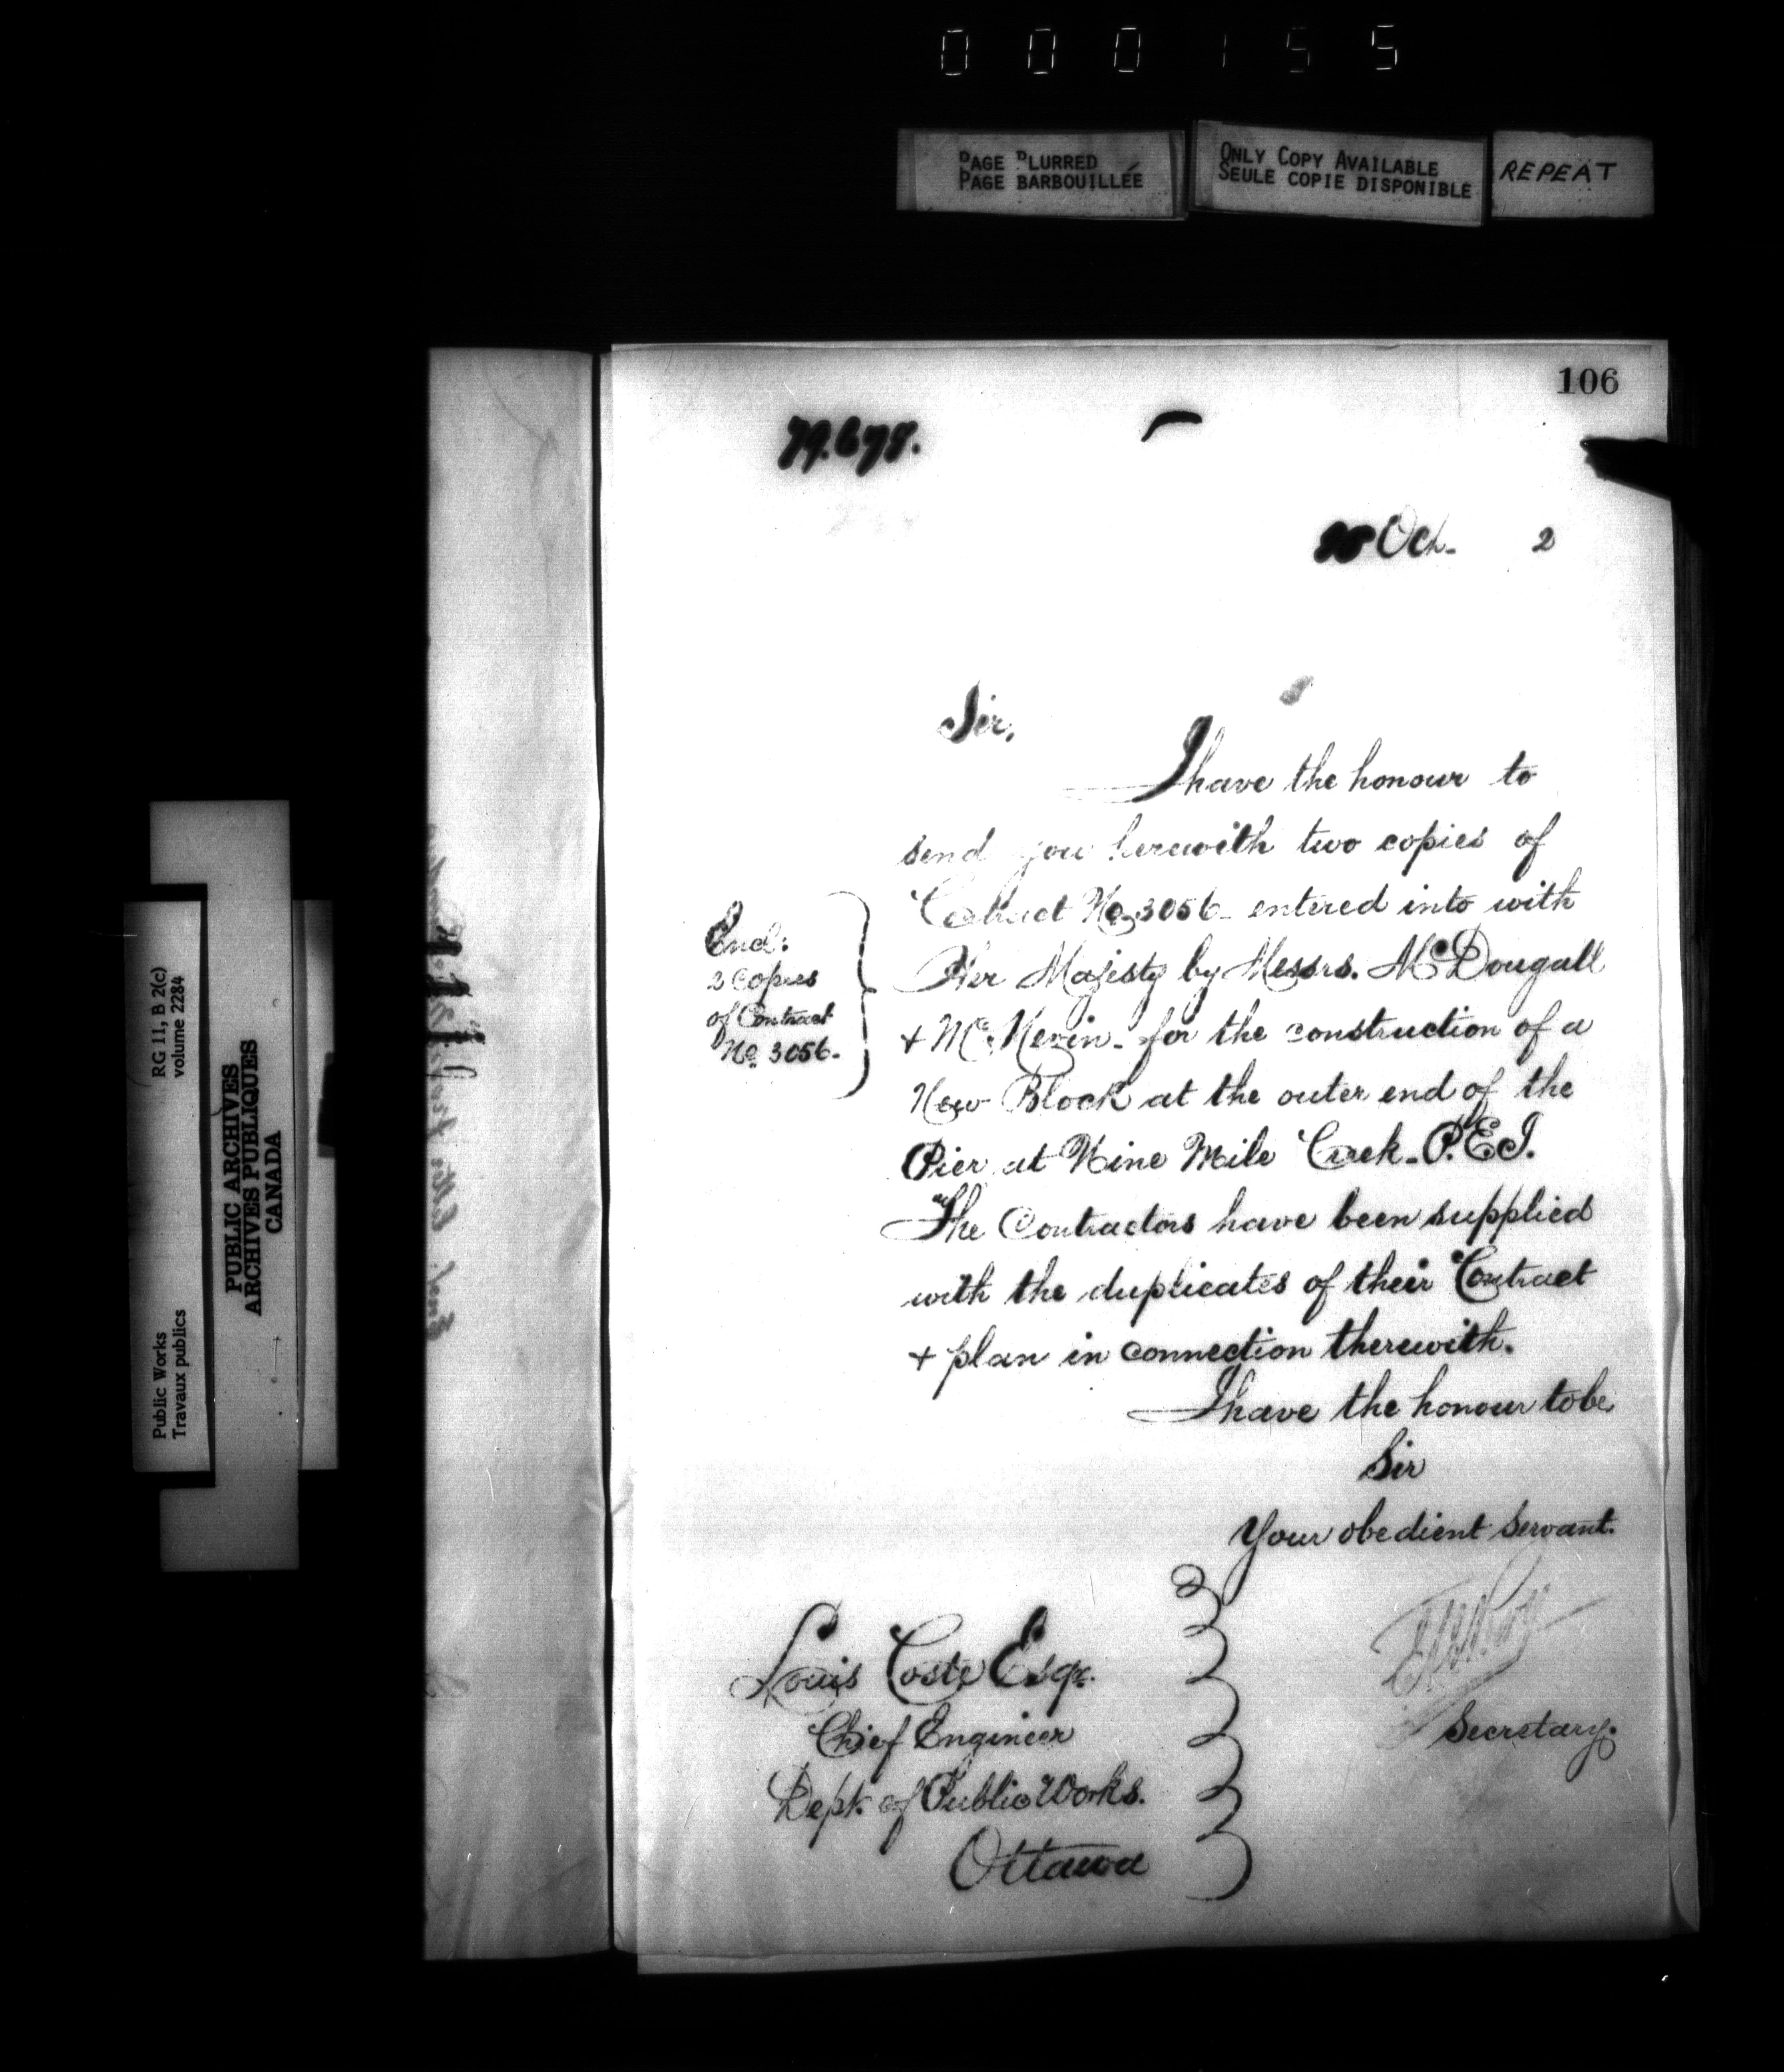 000155
PAGE BLURRED
PAGE BARBOUILLÉE
ONLY COPY AVAILABLE
SEULE COPIE DISPONIBLE
REPEAT
RG 11, B 2(c)
volume 2284
Public Works
Travaux publics
PUBLIC ARCHIVES
ARCHIVES PUBLIQUES
CANADA
106
79.678.
Oct. 2
Sir,
I have the honour to
send you herewith two copies of
Contract No. 3056 - entered into with
Her Majesty by Messrs. McDougall
+ McNevin - for the construction of a
New Block at the outer end of the
Pier at Nine Mile Creek - P.E.I.
The Contractors have been supplied
with the duplicates of their Contract
+ plan in connection therewith.
Encl:
2 Copies
of Contract
No. 3056.
I have the honour to be
Sir
Your obedient servant.
Secretary.
Louis Coste Esqr.
Chief Engineer
Dept. of Public Works.
Ottawa